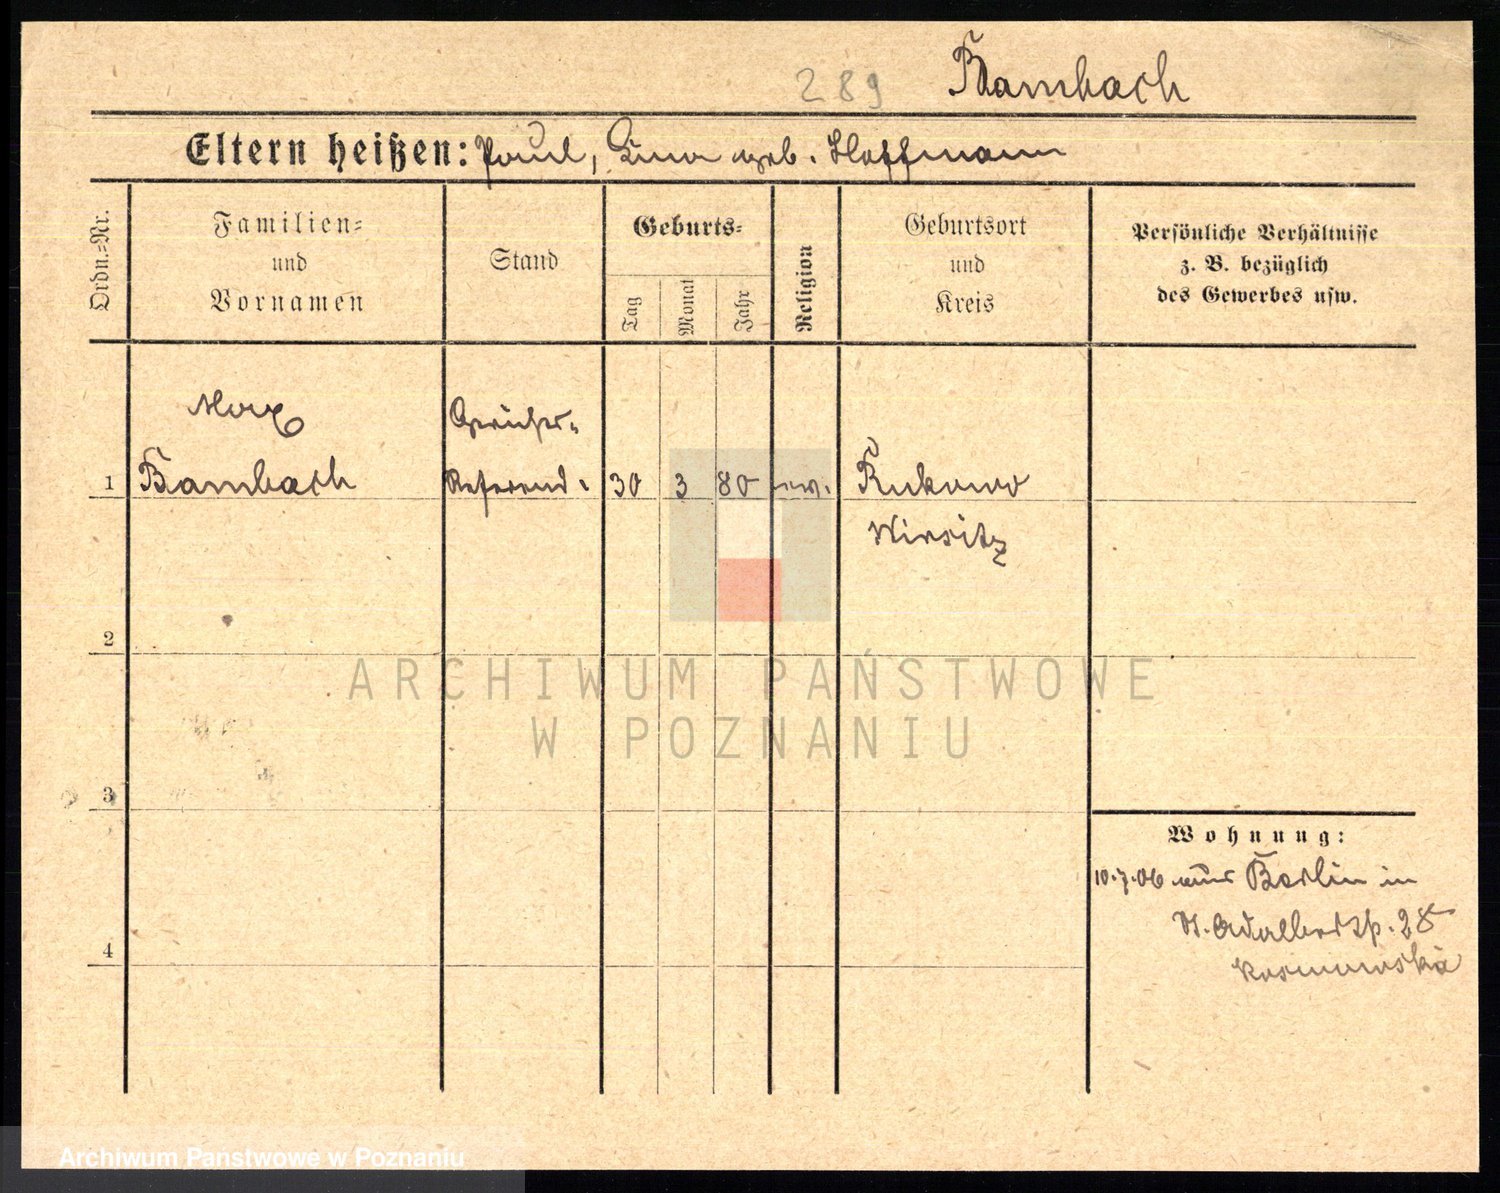 289 Bambach
Eltern heißen: Paul, Lina geb. Hoffmann
Ordn.=Nr.
Familien=
und
Vornamen
Stand
Geburts=
Tag
Monat
Jahr
Religion
Geburtsort
und
Kreis
Persönliche Verhältnisse
z. B. bezüglich
des Gewerbes usw.
Max Gerichts=
1 Bambach Referend. 30 3 80 ev.
Wirsitz
2
ARCHIWUM PAŃSTWOWE
W POZNANIU
3
Wohnung:
10.7.06 aus Berlin in
St. Adalbertstr. 28
4
Archiwum Państwowe w Poznaniu